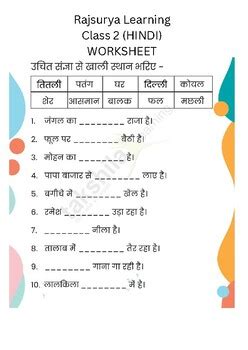 Rajsurya Learning
Class 2 (HINDI)
WORKSHEET
उचित संज्ञा से खाली स्थान भरिए -
तितली पतंग घर दिल्ली कोयल
शेर आसमान बालक फल मछली
1. जंगल का ________ राजा है।
2. फूल पर ________ बैठी है।
3. मोहन का ________ है।
4. पापा बाजार से ________ लाए है।
5. बगीचे में ________ खेल है।
6. रमेश ________ उड़ा रहा है।
7. ________ नीला है।
8. तालाब में ________ तैर रहा है।
9. ________ गाना गा रही है।
10. लालकिला ________ में है।